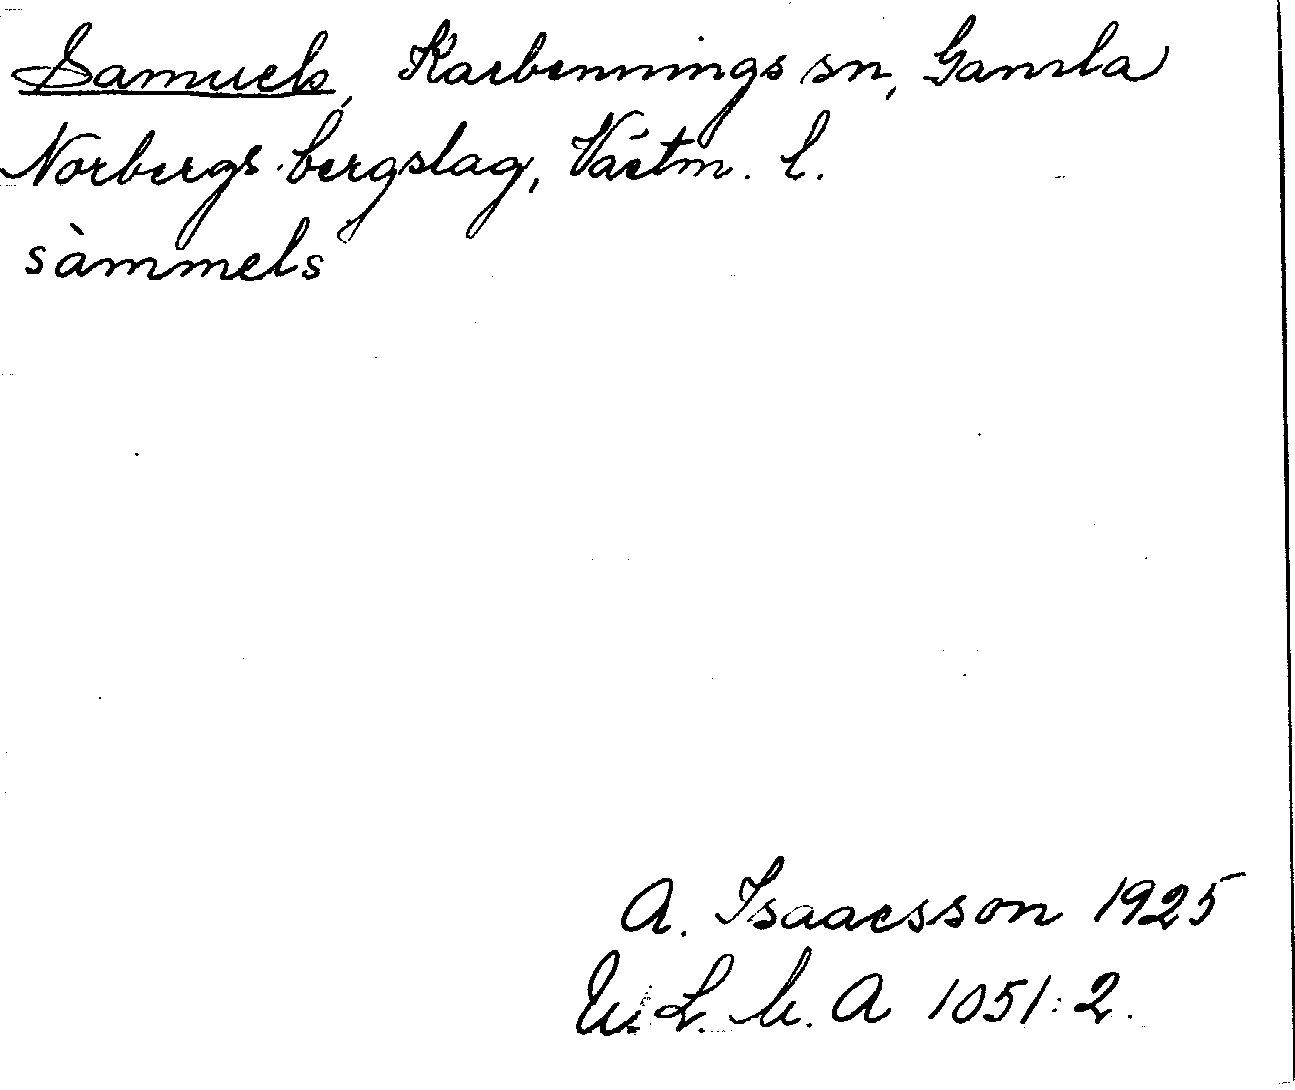 Samuels, Karbennings sn, Gamla
Norbergs bergslag, Västm. l.
sàmmels
A. Isaacsson 1925
U. L. A. A 1051:2.